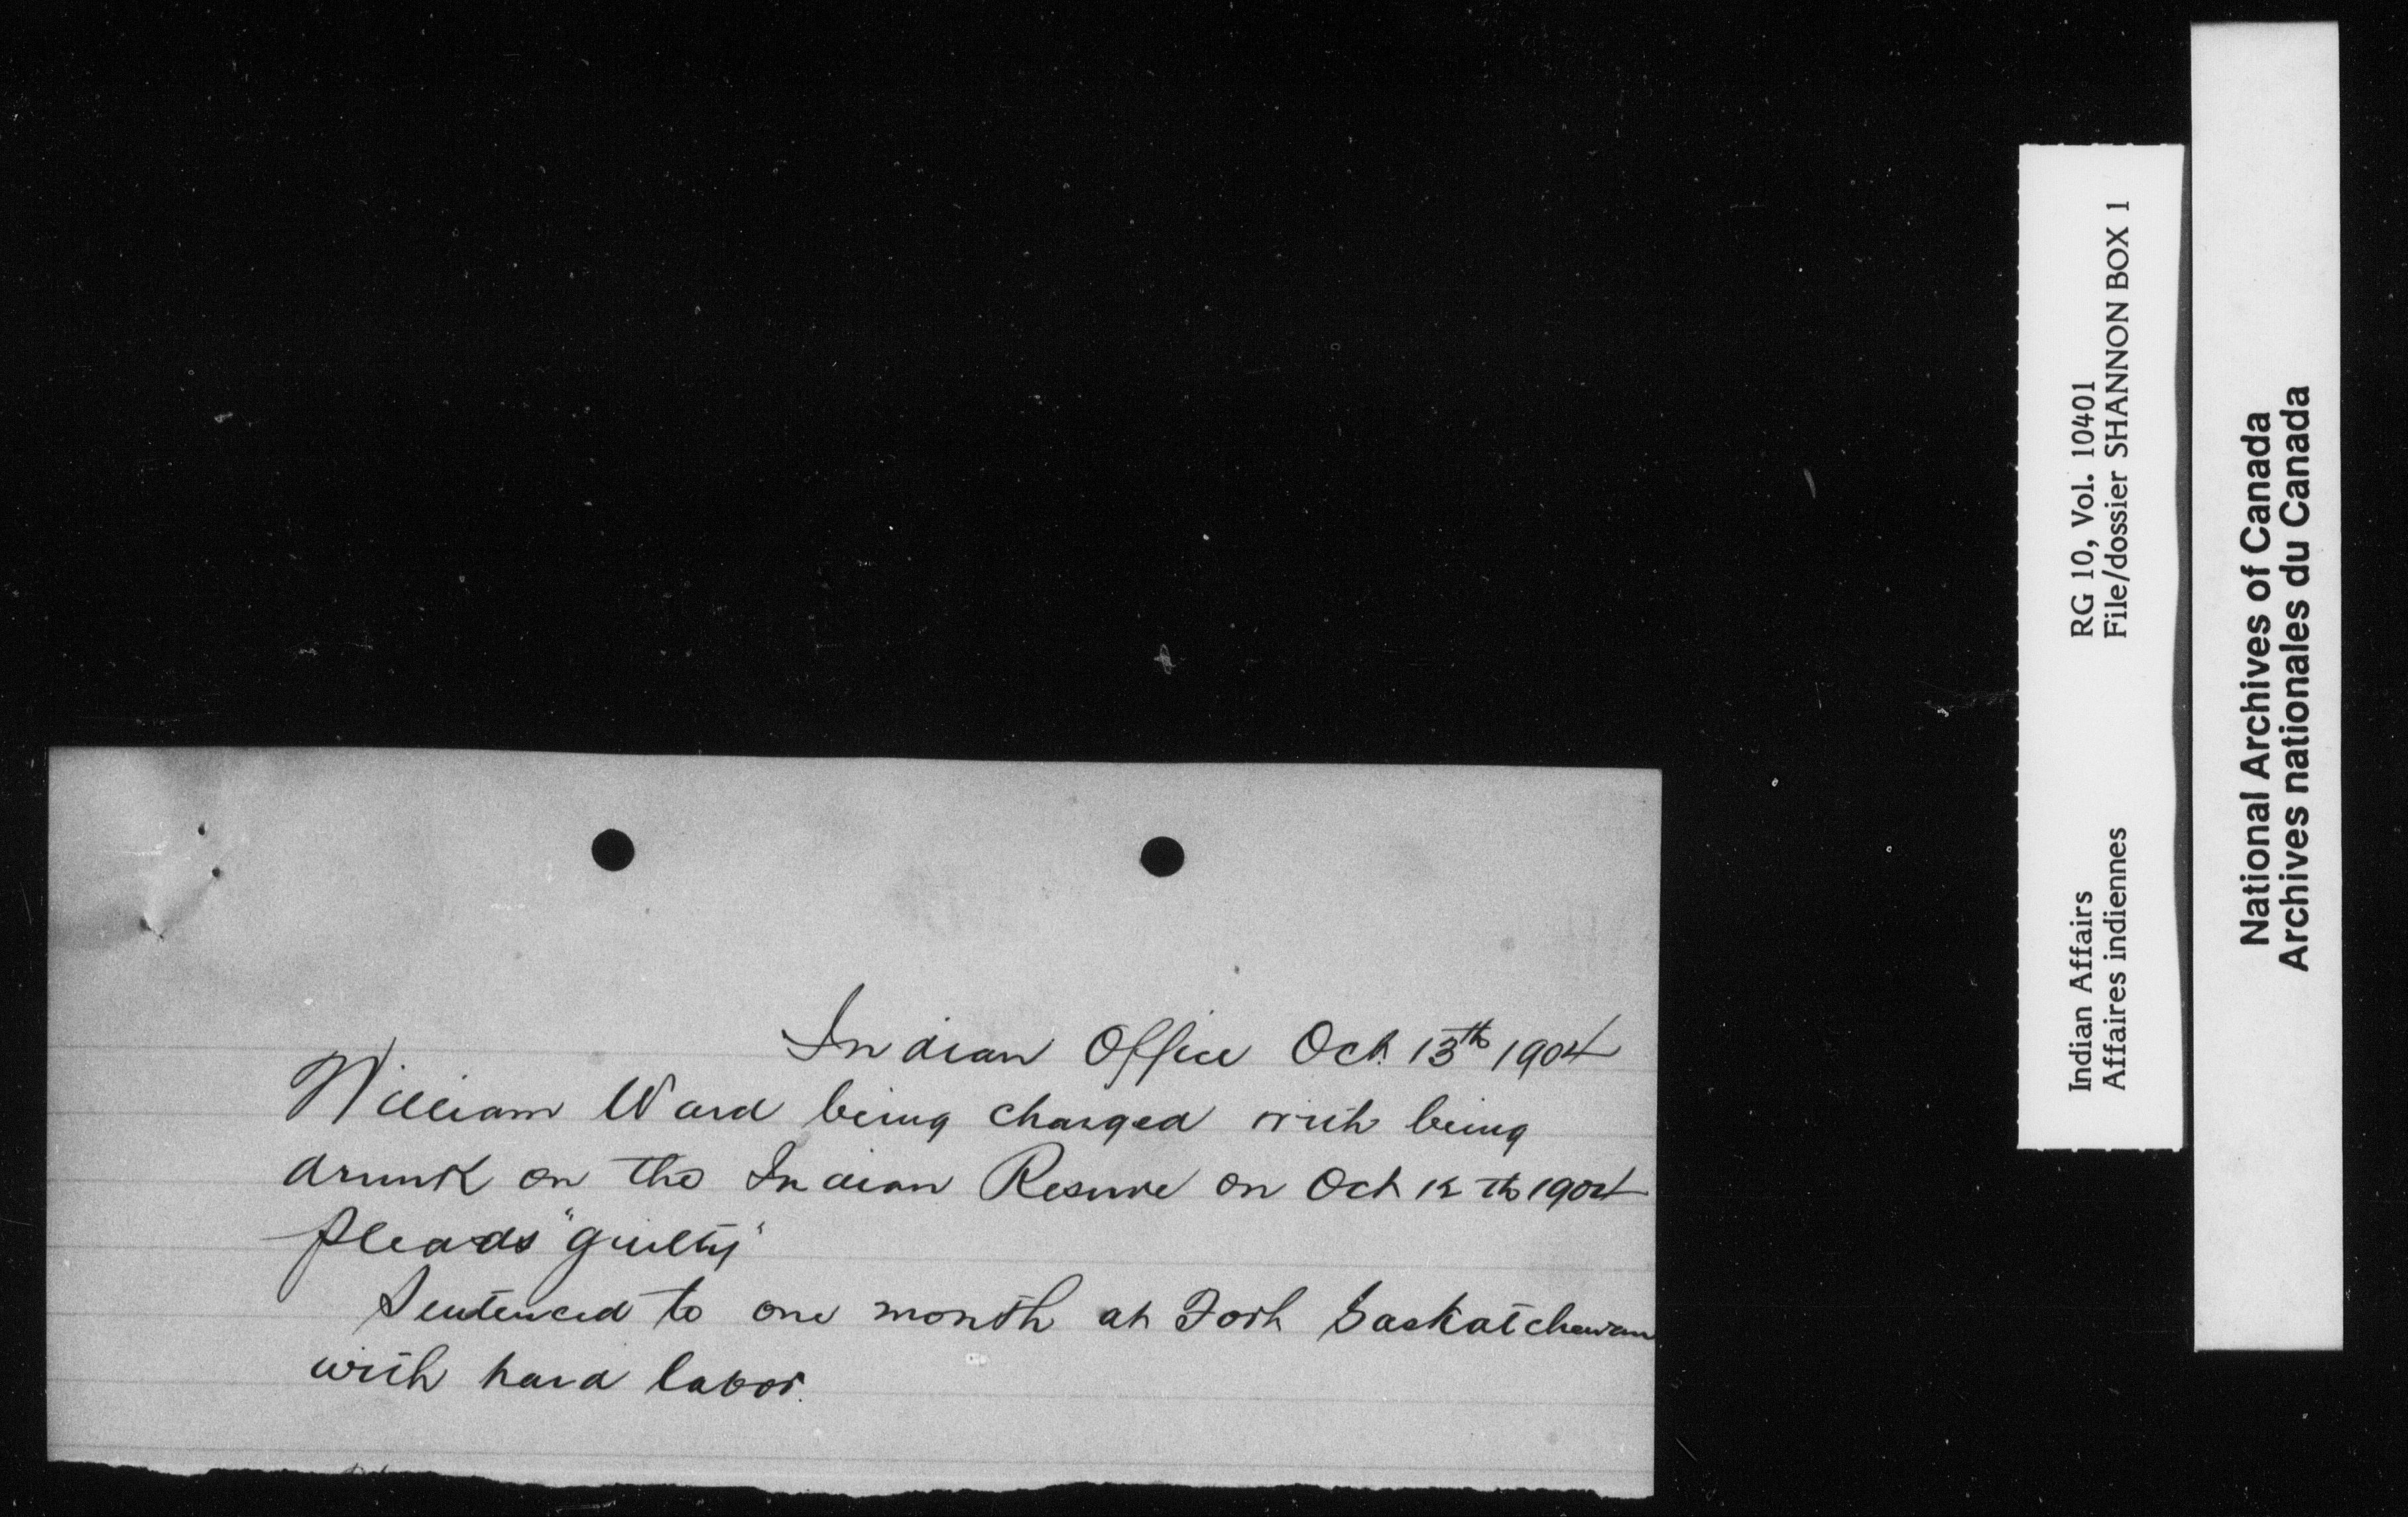 Indian Office Oct. 13th 1904
William Ward being charged with being
drunk on the Indian Reserve on Oct 12th 1904
pleads "guilty"
Sentenced to one month at Fort Saskatchewan
with hard labor.
Indian Affairs RG 10, Vol. 10401
Affaires indiennes File/dossier SHANNON BOX 1
National Archives of Canada
Archives nationales du Canada